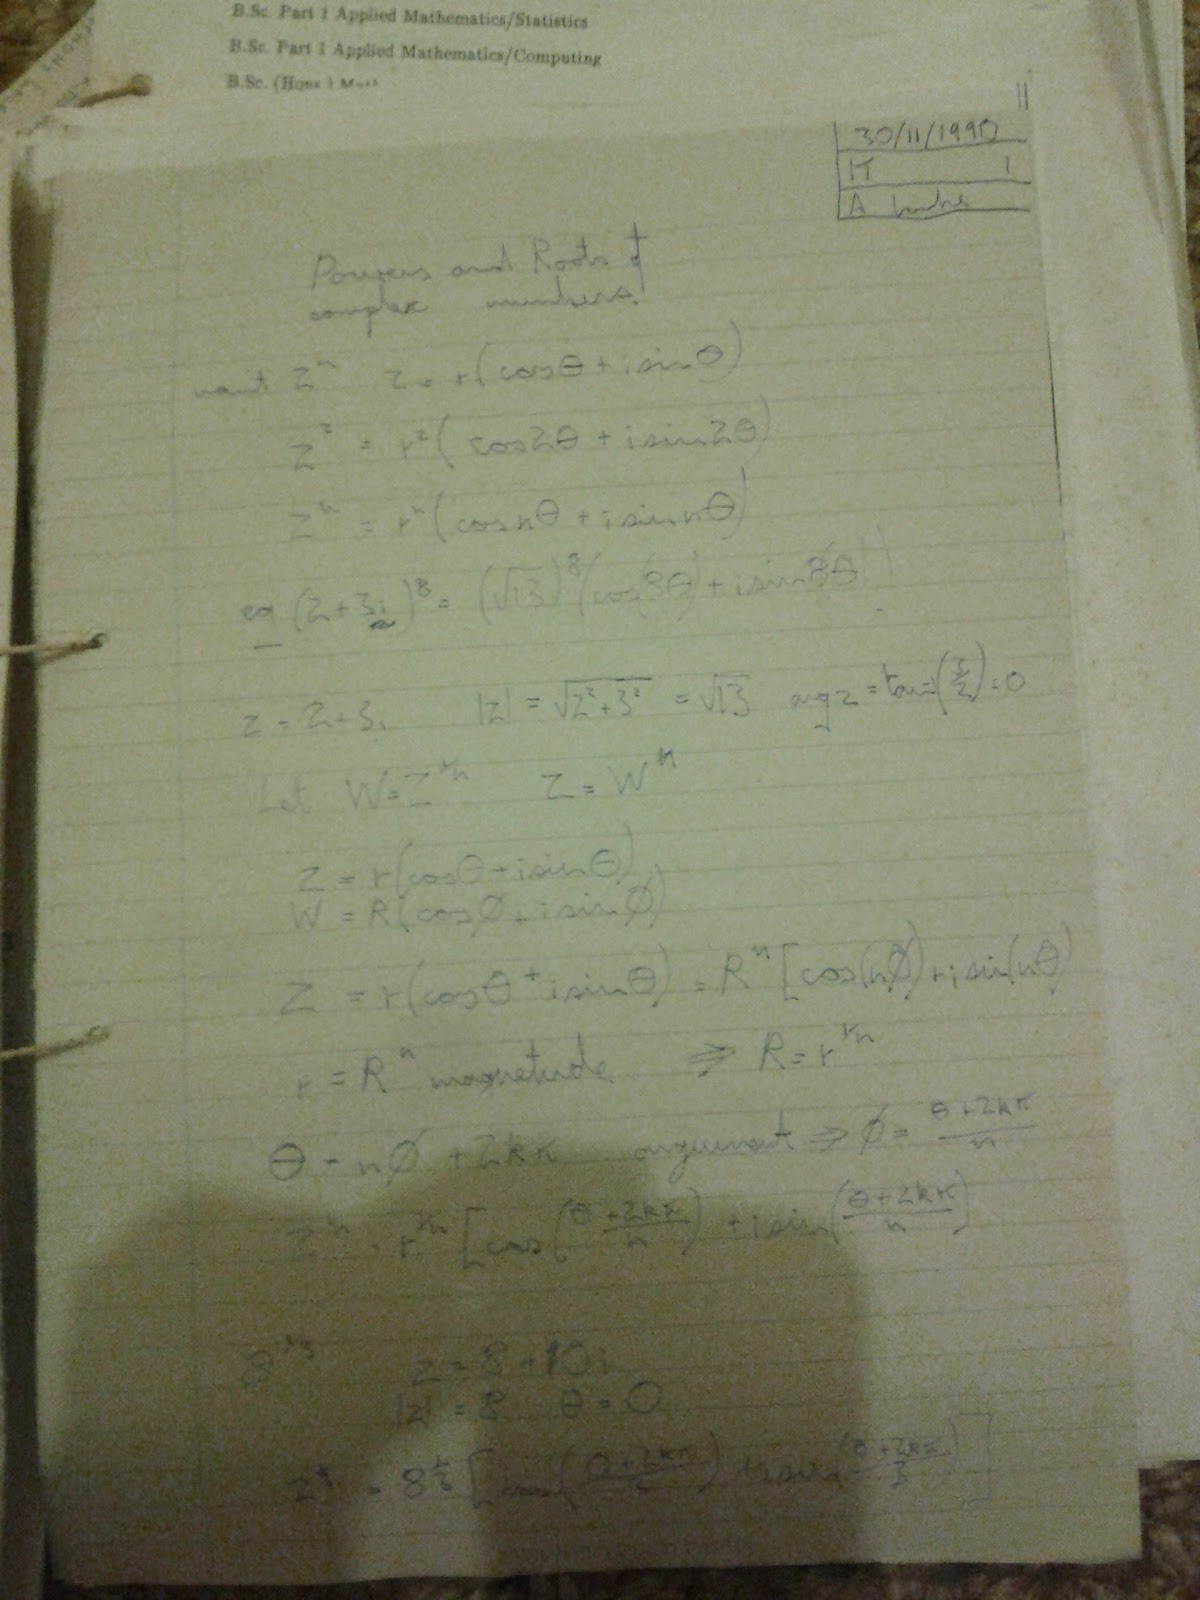 B.Sc. Part 1 Applied Mathematics/Statistics
B.Sc. Part 1 Applied Mathematics/Computing
B.Sc. (Hons)
11
30/11/1990
IT 1
A
Powers and Roots of
complex numbers.
want Zⁿ Z = r(cosθ + i sinθ)
Z² = r²(cos2θ + i sin2θ)
Zⁿ = rⁿ(cos nθ + i sin nθ)
eg (2+3i)⁸ = (√13)⁸(cos8θ + i sin8θ)
z = 2+3i |z| = √2²+3² = √13 arg z = tan⁻¹(3/2) = θ
Let W = Z^1/n Z = Wⁿ
Z = r(cosθ + i sinθ)
W = R(cosØ + i sinØ)
Z = r(cosθ + i sinθ) = Rⁿ[cos(nØ) + i sin(nθ)
r = Rⁿ magnetude ⇒ R = r^1/n
θ = nØ + 2kπ argument ⇒ Ø = θ+2kπ/n
Z^1/n = r^1/n [cos(θ+2kπ/n) + i sin(θ+2kπ/n)
8^1/3 z = 8+10i
|z| = 8 θ = 0
= 8^1/3 [cos(0+2kπ/3) + i sin(0+2kπ/3)]